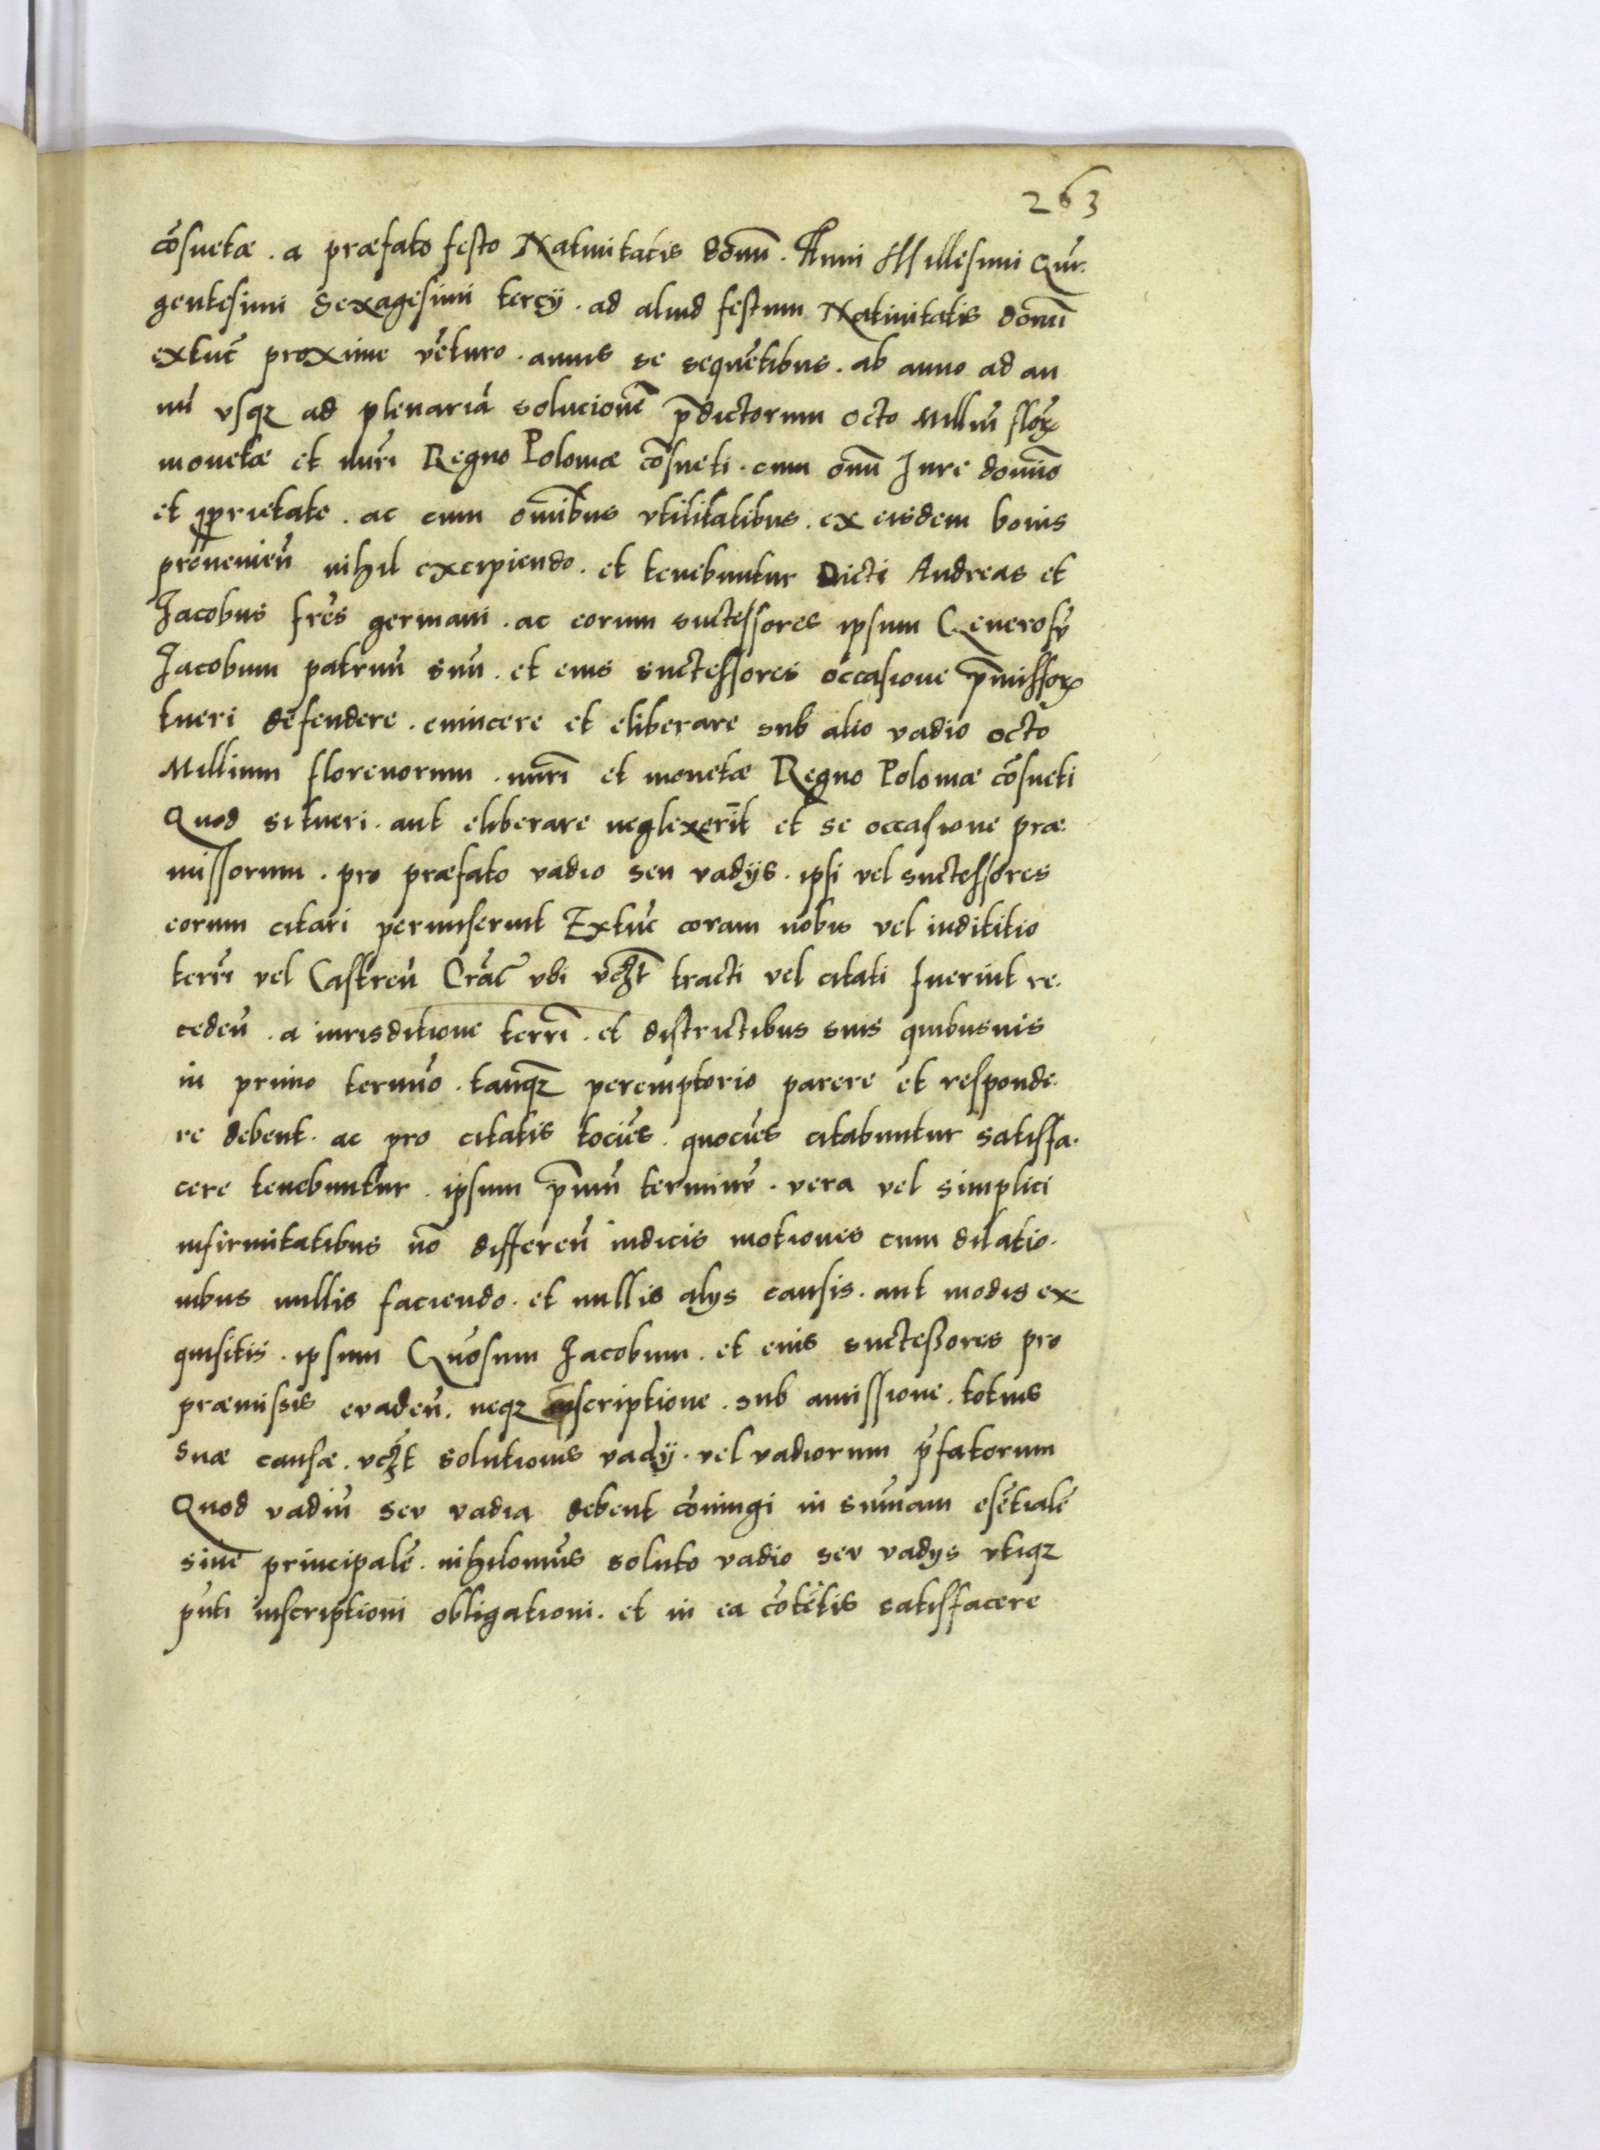 263
cōsuetæ . a præfato festo Natiuitatis domī . Anni Millesimi Quī
gentesimi Sexagesimi tercÿ . ad aliud festum Natiuitatis domī
extūc proxime vēturo . annis se sequētibus . ab anno ad an
nū vsqꝫ ad plenariā solucionē p̄dictorum octo Milliū floꝝ
monetæ et nūri Regno Poloniæ cōsueti . cum omī Jure domīo
et ꝓprietate . ac cum omībus vtilitatibus . ex eisdem bonis
proueniēn nihil excipiendo . et tenebuntur Dicti Andreas et
Jacobus frēs germani . ac eorum suctessores ipsum Generosū
Jacobum patruū suū . et eius suctessores occasione p̄missoꝝ
tueri defendere . euincere et eliberare sub alio vadio octo
Millium florenorum . nūri et monetæ Regno Poloniæ cōsueti
Quod si tueri . aut eliberare neglexerīt et se occasione præ
missorum . pro præfato vadio seu vadÿs . ipsi vel suctessores
eorum citari permiserint Extūc coram nobis vel iudititio
terrī vel Castreñ Crāc vbi vꝫt tracti vel citati fuerint re
cedeñ . a iurisditione terrī . et districtibus suis quibusuis
in primo termīo . tanqꝫ peremptorio parere et responde
re debent . ac pro citatis tociēs . quociēs citabuntur satisfa
cere tenebuntur . ipsum p̄mū terminū . vera vel simplici
infirmitatibus nō differeñ iudicis motiones cum dilatio
nibus nullis faciendo . et nullis alÿs causis . aut modis ex
quisitis . ipsum Gñosum Jacobum . et eius suctessores pro
præmissis euadeñ . neqꝫ inscriptione . sub amissione . totius
suæ causæ . vꝫt solutionis vadÿ . vel vadiorum p̄fatorum
Quod vadiū seu vadia debent cōiungi in summam esētialē
siue principalē . nihilominus soluto vadio seu vadÿs vtiqꝫ
pn̄ti inscriptioni obligationi . et in ea cōtētis satisfacere